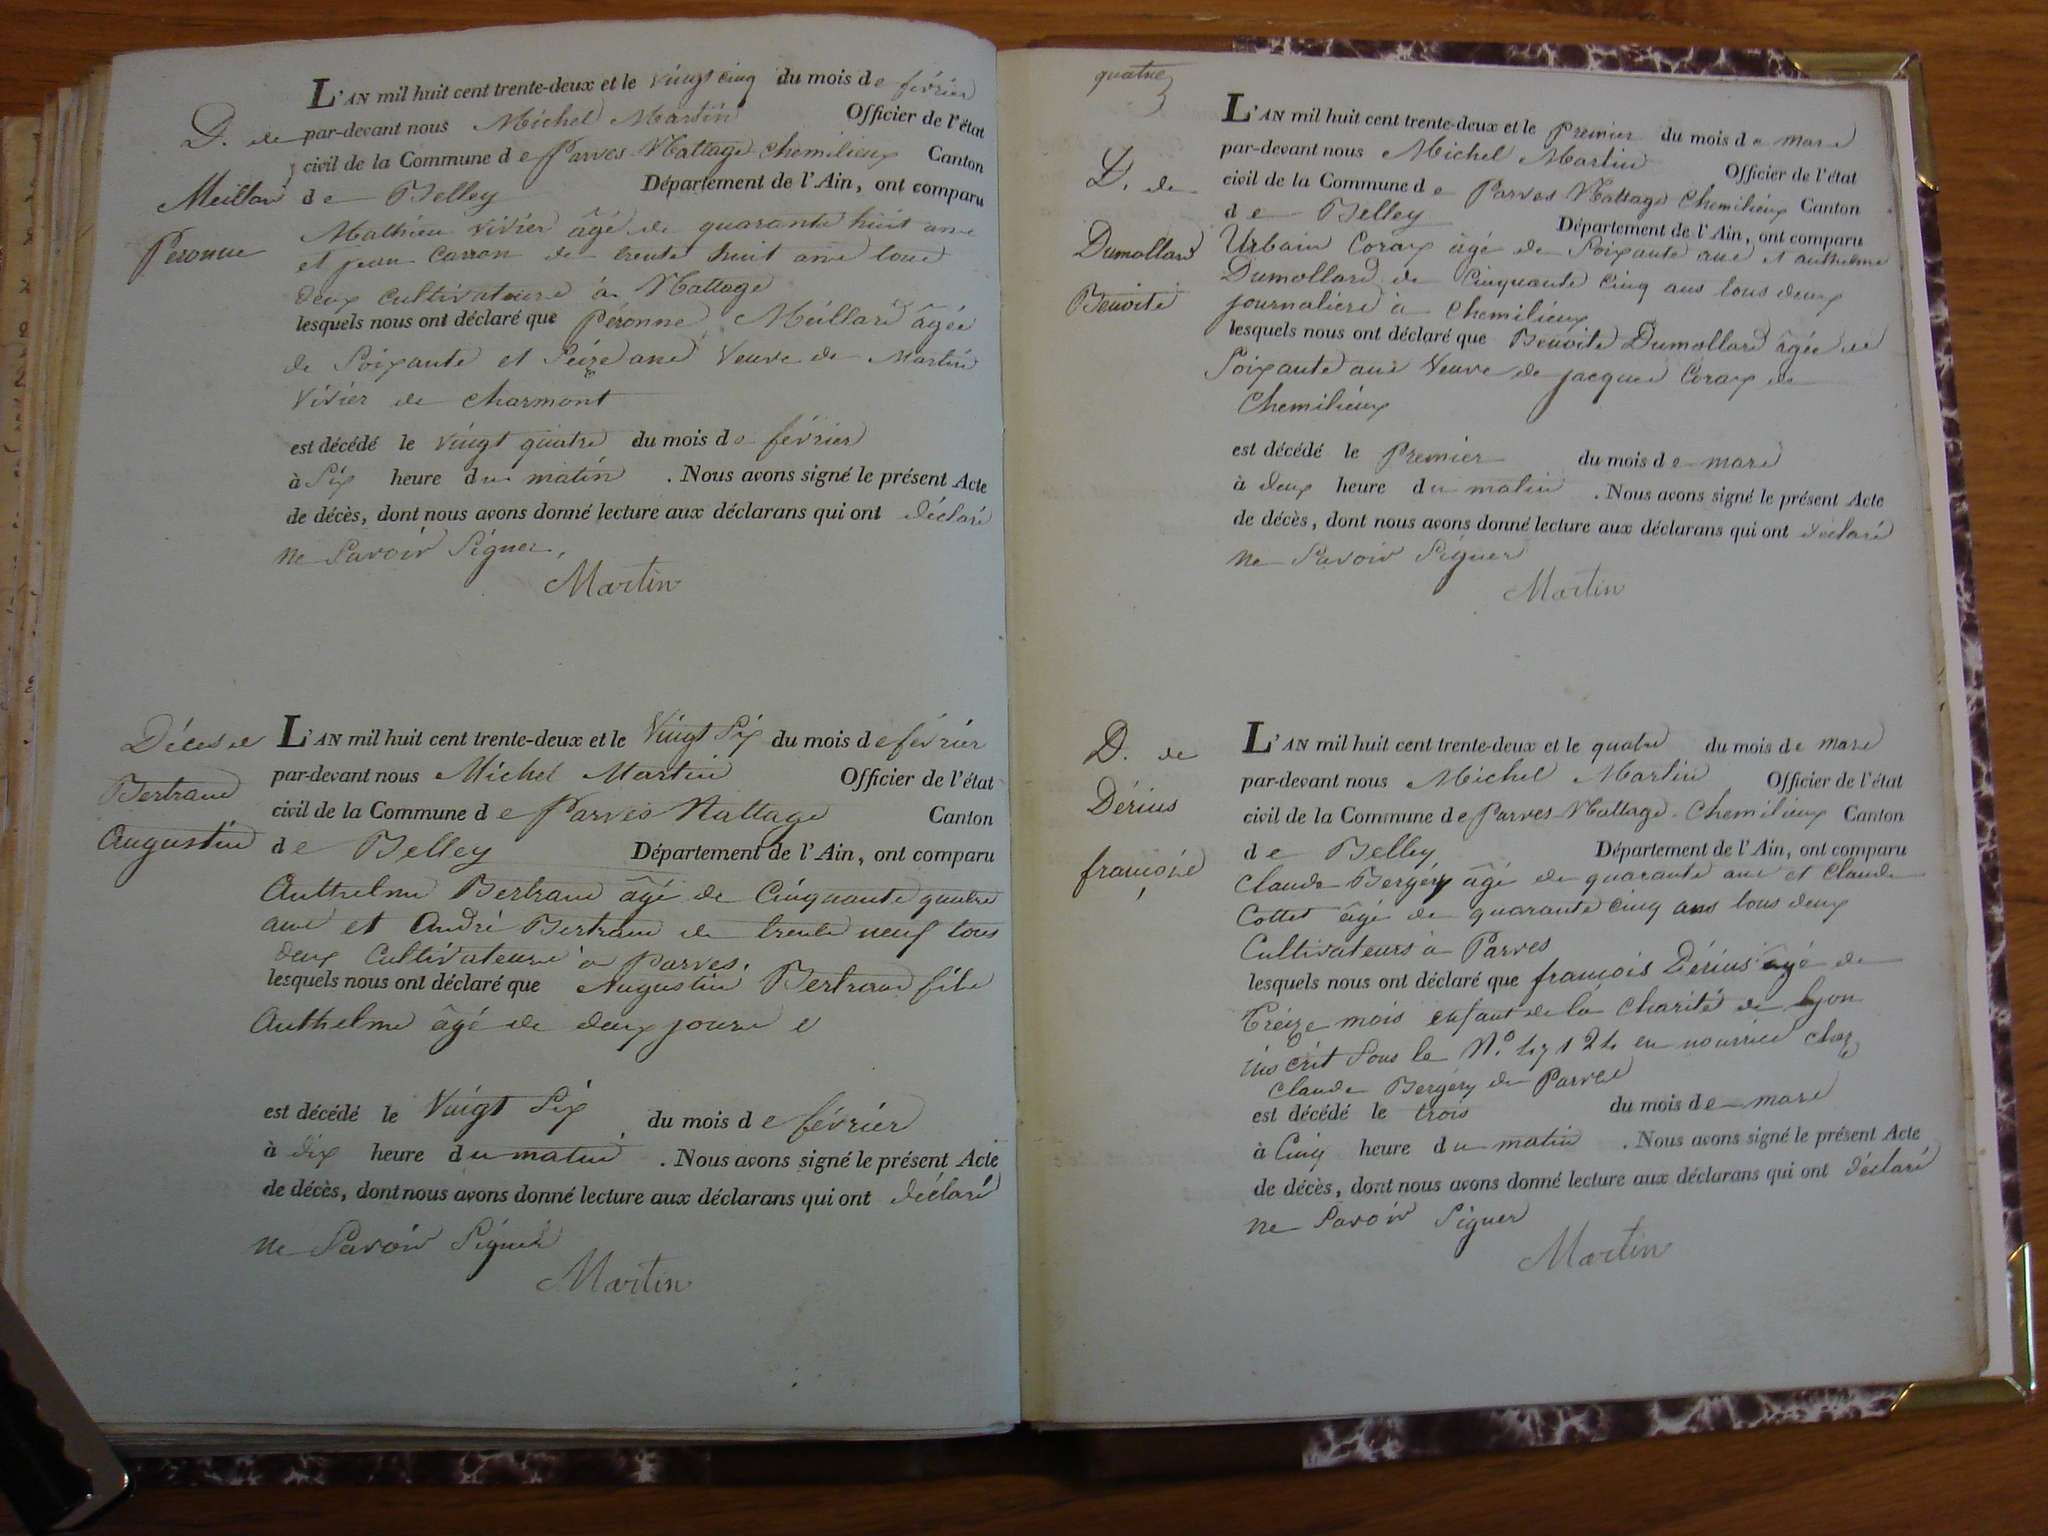 D. de
Meillard
Peronne
L'AN mil huit cent trente-deux et le vingt cinq du mois de février
par-devant nous Michel Martin Officier de l'état
civil de la Commune de Parves Nattage Chemilieux Canton
de Belley Département de l'Ain, ont comparu
Mathieu Vivier âgé de quarante huit ans
et jean Carron de trente huit ans tous
deux cultivateurs à Nattage
lesquels nous ont déclaré que Péronne Meillard âgée
de Soixante et Seize ans Veuve de Martin
Vivier de Charmont
est décédé le vingt quatre du mois de février
à Six heure du matin . Nous avons signé le présent Acte
de décès, dont nous avons donné lecture aux déclarans qui ont déclaré
ne Savoir Signer.
Martin
Décès de
Bertrand
Augustin
L'AN mil huit cent trente-deux et le Vingt Six du mois de février
par-devant nous Michel Martin Officier de l'état
civil de la Commune de Parves Nattage Canton
de Belley Département de l'Ain, ont comparu
Anthelme Bertrand âgé de Cinquante quatre
ans et André Bertrand de trente neuf tous
deux Cultivateurs à Parves.
lesquels nous ont déclaré que Augustin Bertrand fils
Anthelme âgé de deux jours
est décédé le Vingt Six du mois de février
à dix heure du matin . Nous avons signé le présent Acte
de décès, dont nous avons donné lecture aux déclarans qui ont déclaré
ne Savoir Signer
Martin
quatre
D. de
Dumollard
Benoite
L'AN mil huit cent trente-deux et le Premier du mois de mars
par-devant nous Michel Martin Officier de l'état
civil de la Commune de Parves Nattage Chemilieux Canton
de Belley Département de l'Ain, ont comparu
Urbain Corax âgé de Soixante ans et anthelme
Dumollard de Cinquante cinq ans tous deux
journaliers à Chemilieux
lesquels nous ont déclaré que Benoite Dumollard âgée de
Soixante ans Veuve de jacques Corax de
Chemilieux
est décédé le Premier du mois de mars
à deux heure du matin . Nous avons signé le présent Acte
de décès, dont nous avons donné lecture aux déclarans qui ont déclaré
ne Savoir Signer
Martin
D. de
Dérius
françois
L'AN mil huit cent trente-deux et le quatre du mois de mars
par-devant nous Michel Martin Officier de l'état
civil de la Commune de Parves-Nattage-Chemilieux Canton
de Belley Département de l'Ain, ont comparu
Claude Bergéry âgé de quarante ans et Claude
Cottet âgé de quarante cinq ans tous deux
Cultivateurs à Parves
lesquels nous ont déclaré que françois Dérius âgé de
Treize mois enfant de la Charité de Lyon
inscrit Sous le N.º 47124 en nourrice chez
Claude Bergéry de Parves
est décédé le trois du mois de mars
à Cinq heure du matin . Nous avons signé le présent Acte
de décès, dont nous avons donné lecture aux déclarans qui ont déclaré
ne Savoir Signer
Martin